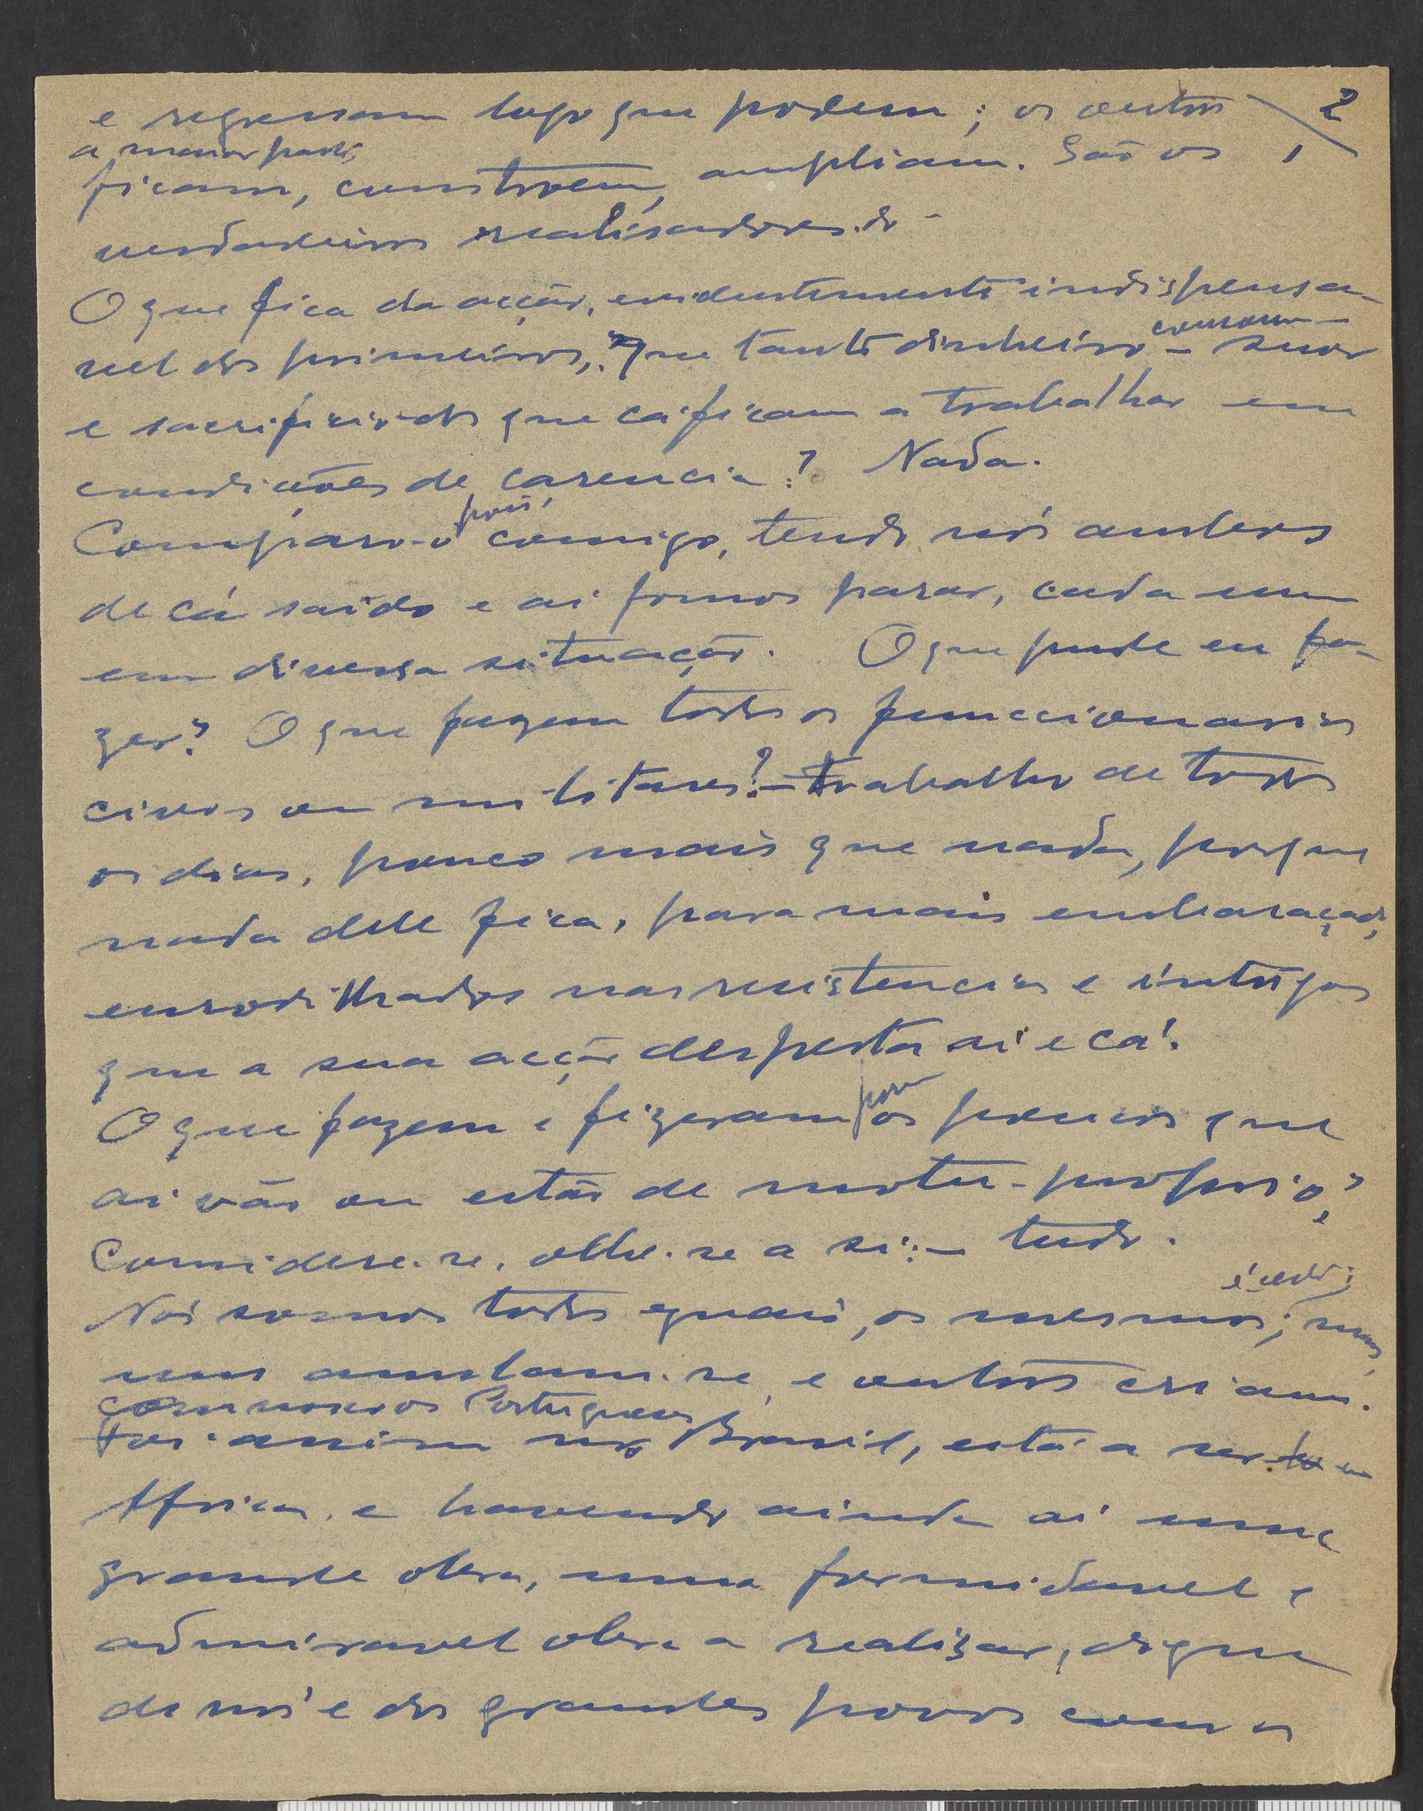 e regressam logo que podem; os outros 2
a maior parte,
ficam, constroem, ampliam. São os
verdadeiros realisadores.
O que fica da acção, evidentemente indispensa-
vel dos primeiros, que tanto dinheiro consome - suor
e sacrificio dos que cá ficam a trabalhar em
condições de carencia? Nada.
pois,
Comparo-o comigo, tendo nós ambos
de cá saido e ai fomos parar, cada um
em diversa situação. O que pude eu fa-
zer? O que fazem todos os funccionarios
civis ou militares? - Trabalho de todos
os dias, pouco mais que nada, porque
nada dele fica, para mais embaraçados,
enrodilhados nas resistencias e intrigas
que a sua acção desperta ai e cá.
O que fazem e fizeram os poucos que
ai vão ou estão de motu-proprio?
Considere-se, olhe-se a si: - tudo.
Nós somos todos eguais, os mesmos, é certo; mas,
uns anulam-se, e outros criam.
com nossos Portugueses
Foi assim no Brasil, está a ser em
Africa, e havendo ainda ai uma
grande obra, uma formidavel e
admiravel obra a realizar, digna
de nós e dos grandes povos com os